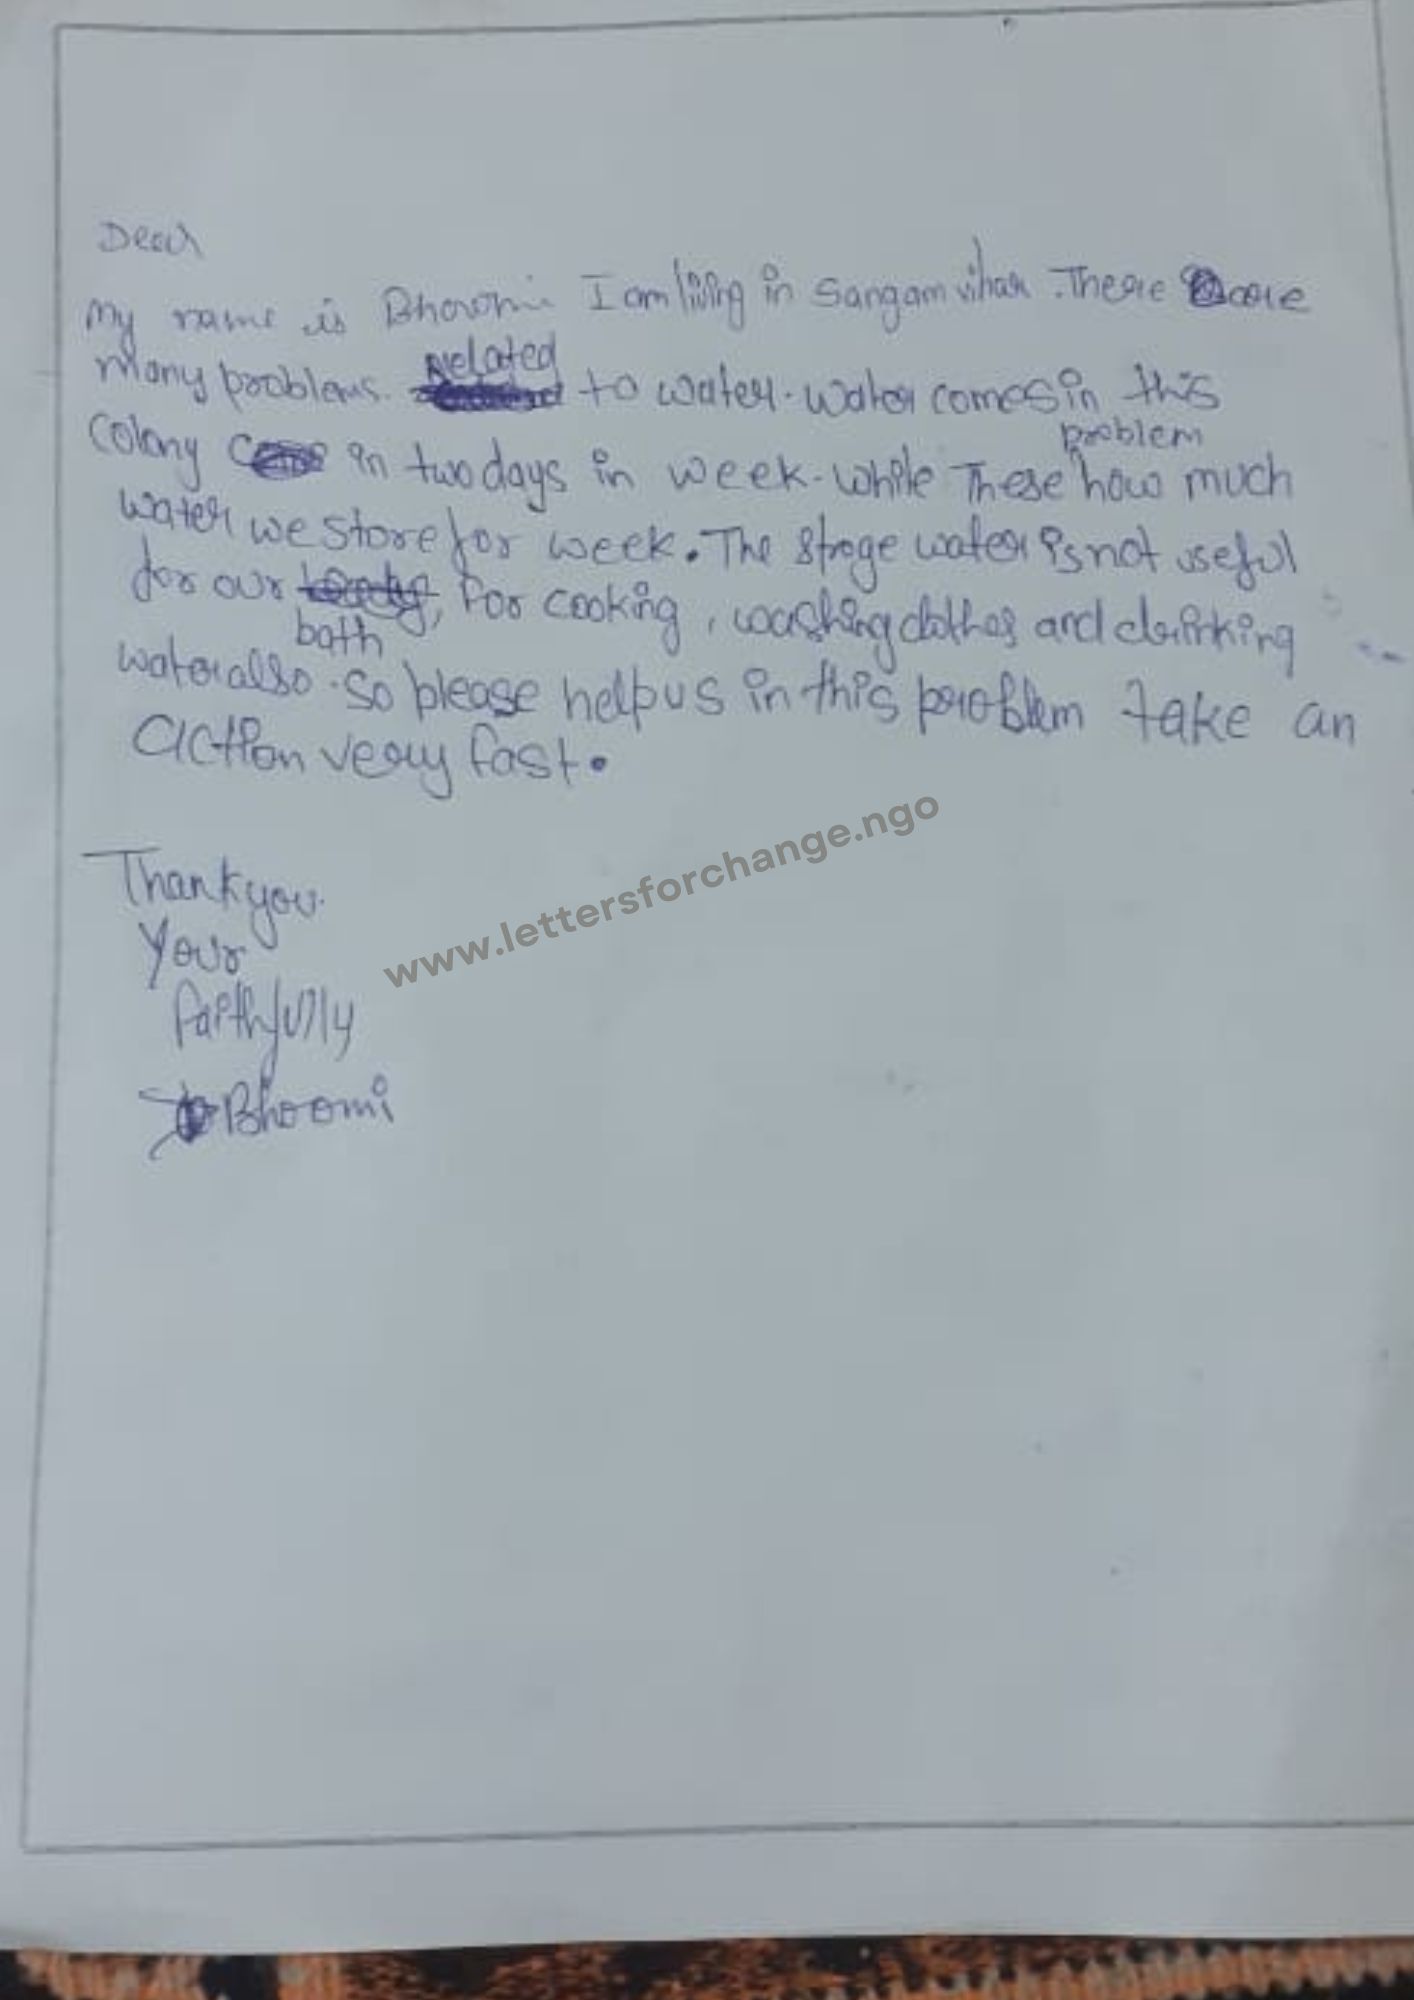 Dear
My name is Bhoomi I am living in Sangam vihar. There are
many problems related to water. Water comes in this
colony in two days in week. while These problem how much
water we store for week. The stroge water is not useful
for our bath, for cooking, washing clothes and drinking
water also. So please help us in this problem take an
action very fast.
www.lettersforchange.ngo
Thankyou.
Your
faithfully
Bhoomi